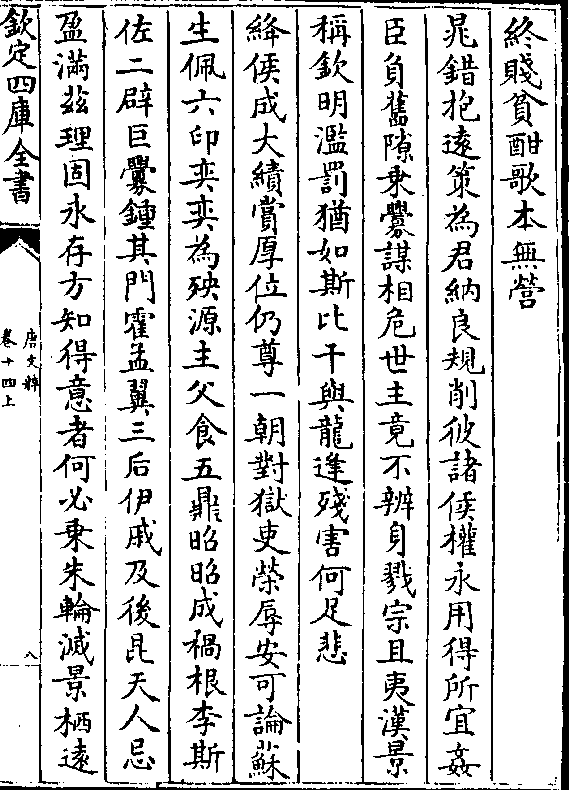 終賤貧酣歌本無營
晁錯抱遠策為君納良規削彼諸侯權永用得所宜姦
臣負舊隙乗釁謀相危世主竟不辨身戮宗且夷漢景
稱欽明濫罰猶如斯比干與龍逢殘害何足悲
絳侯成大績賞厚位仍尊一朝對獄吏榮辱安可論蘇
生佩六印奕奕為殃源主父食五鼎昭昭成禍根李斯
佐二辟巨釁鍾其門霍孟翼三后伊戚及後昆天人忌
盈滿兹理固永存方知得意者何必乗朱輪滅景栖遠
欽定四庫全書
唐文粹
卷十四上
八